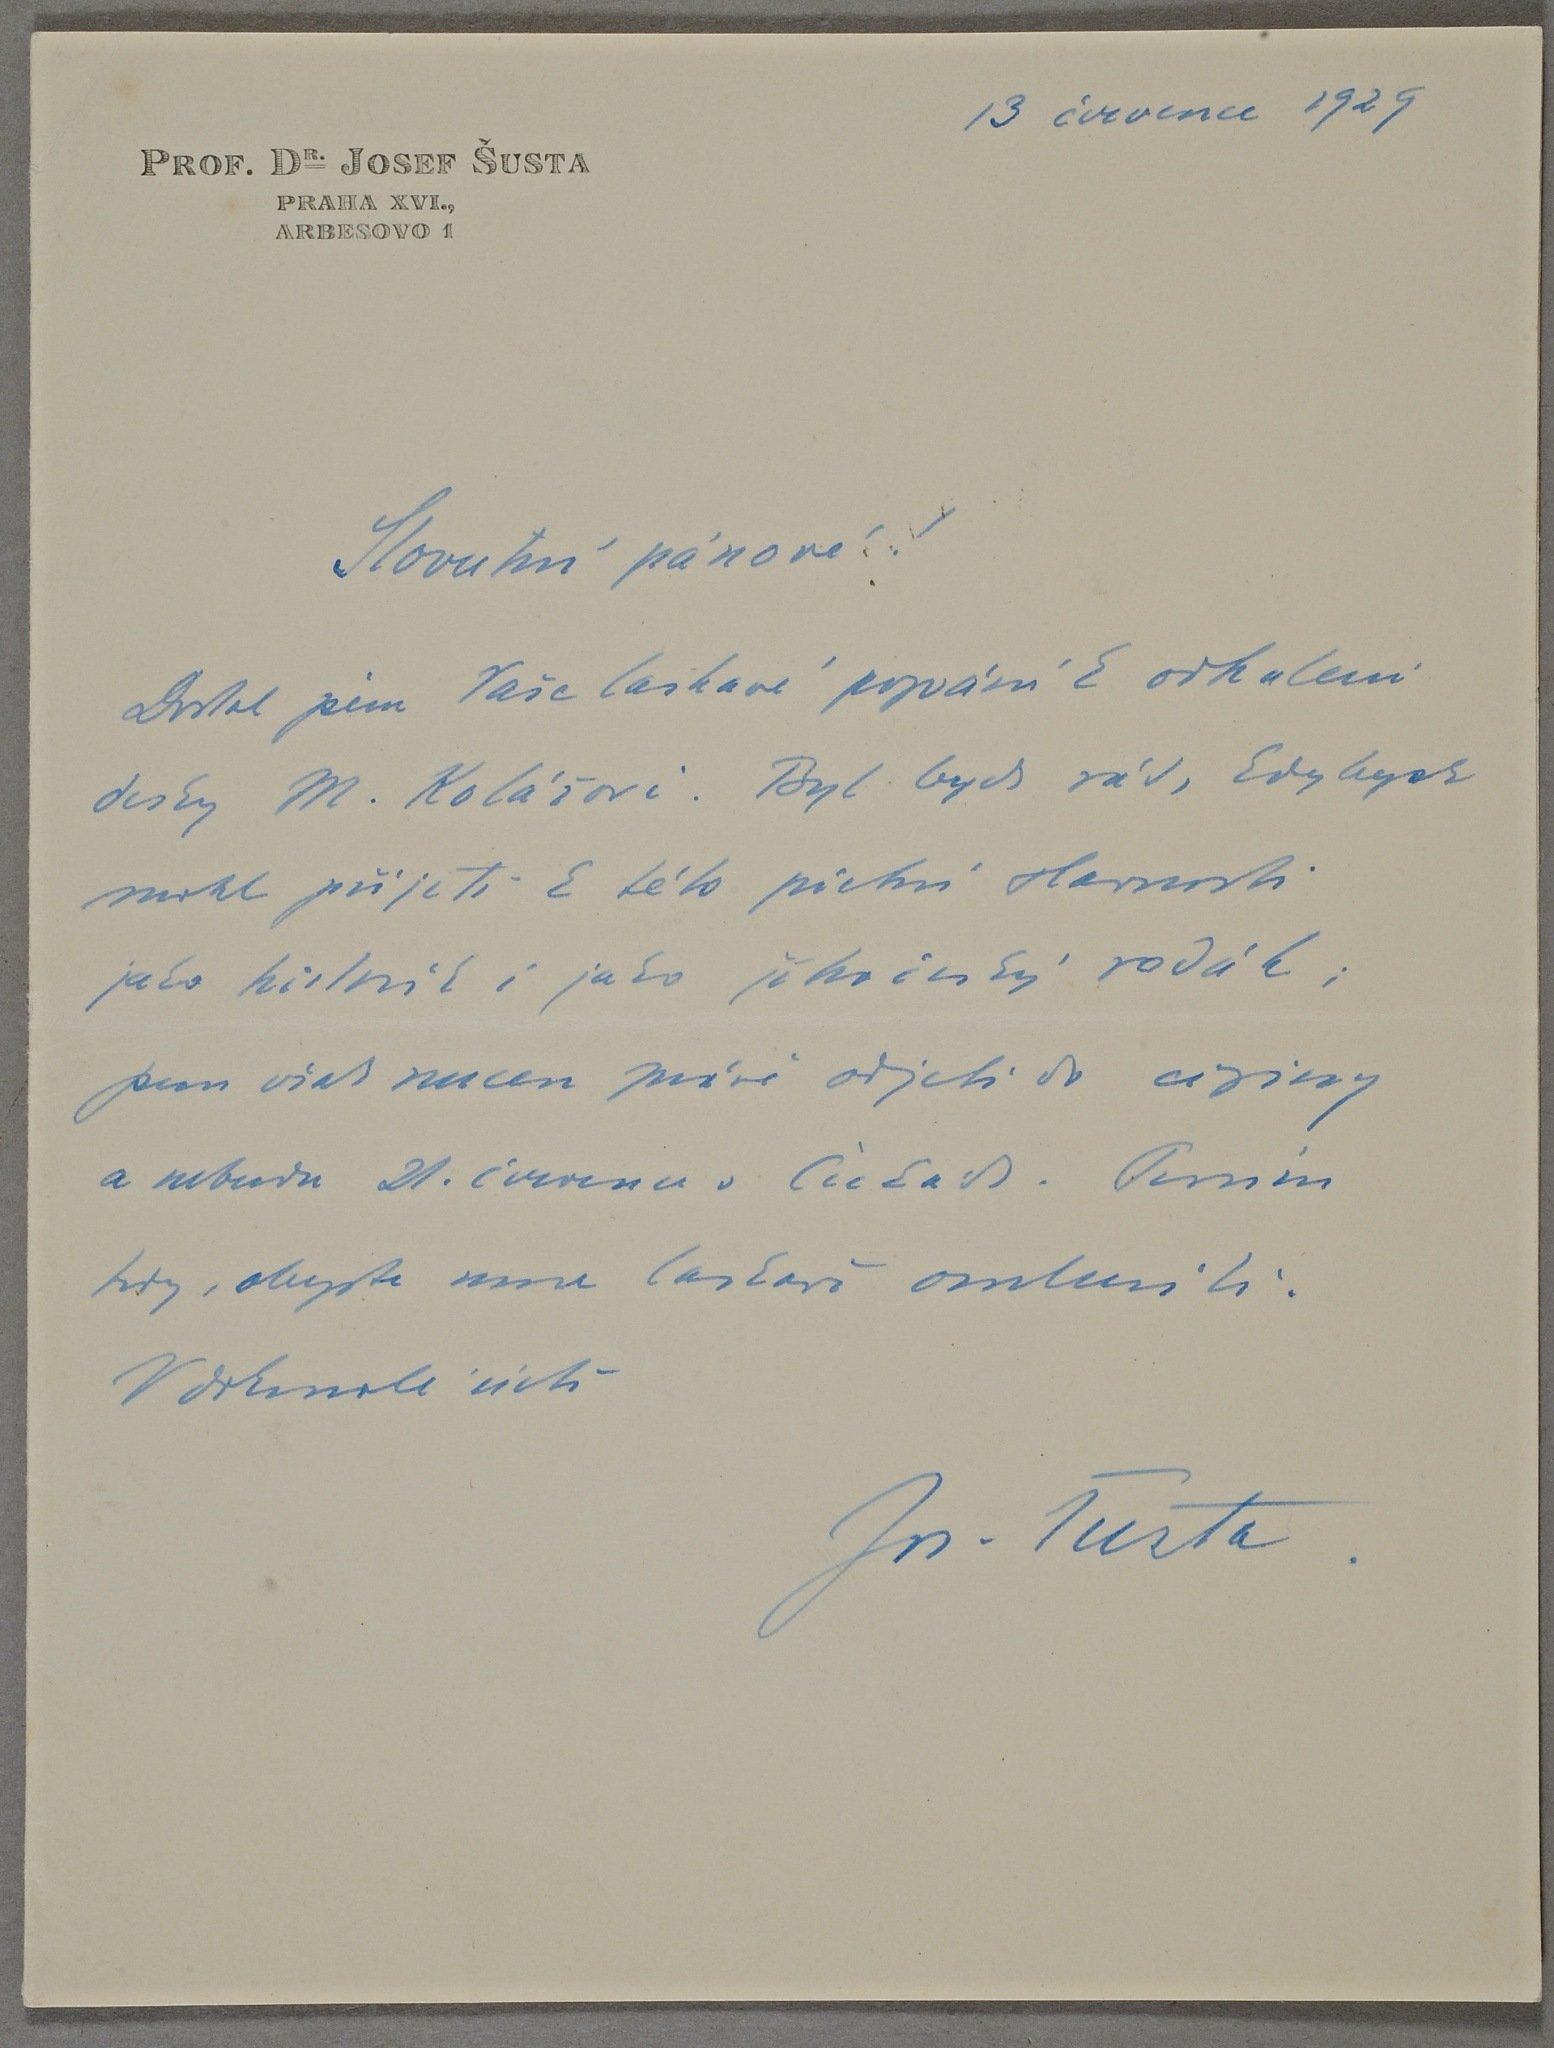 13 července 1929
PROF. DR. JOSEF ŠUSTA
PRAHA XVI.,
ARBESOVO 1
Slovutní pánové!
Dostal jsem Vaše laskavé pozvání k odhalení
desky M. Kolářovi. Byl bych rád, kdybych
mohl přijeti k této pietní slavnosti
jako historik i jako jihočeský rodák;
jsem však nucen právě odjeti do ciziny
a nebudu 21. července v Čechách. Prosím
tedy, abyste mne laskavě omluvili.
V dokonalé úctě
Jos. Šusta.